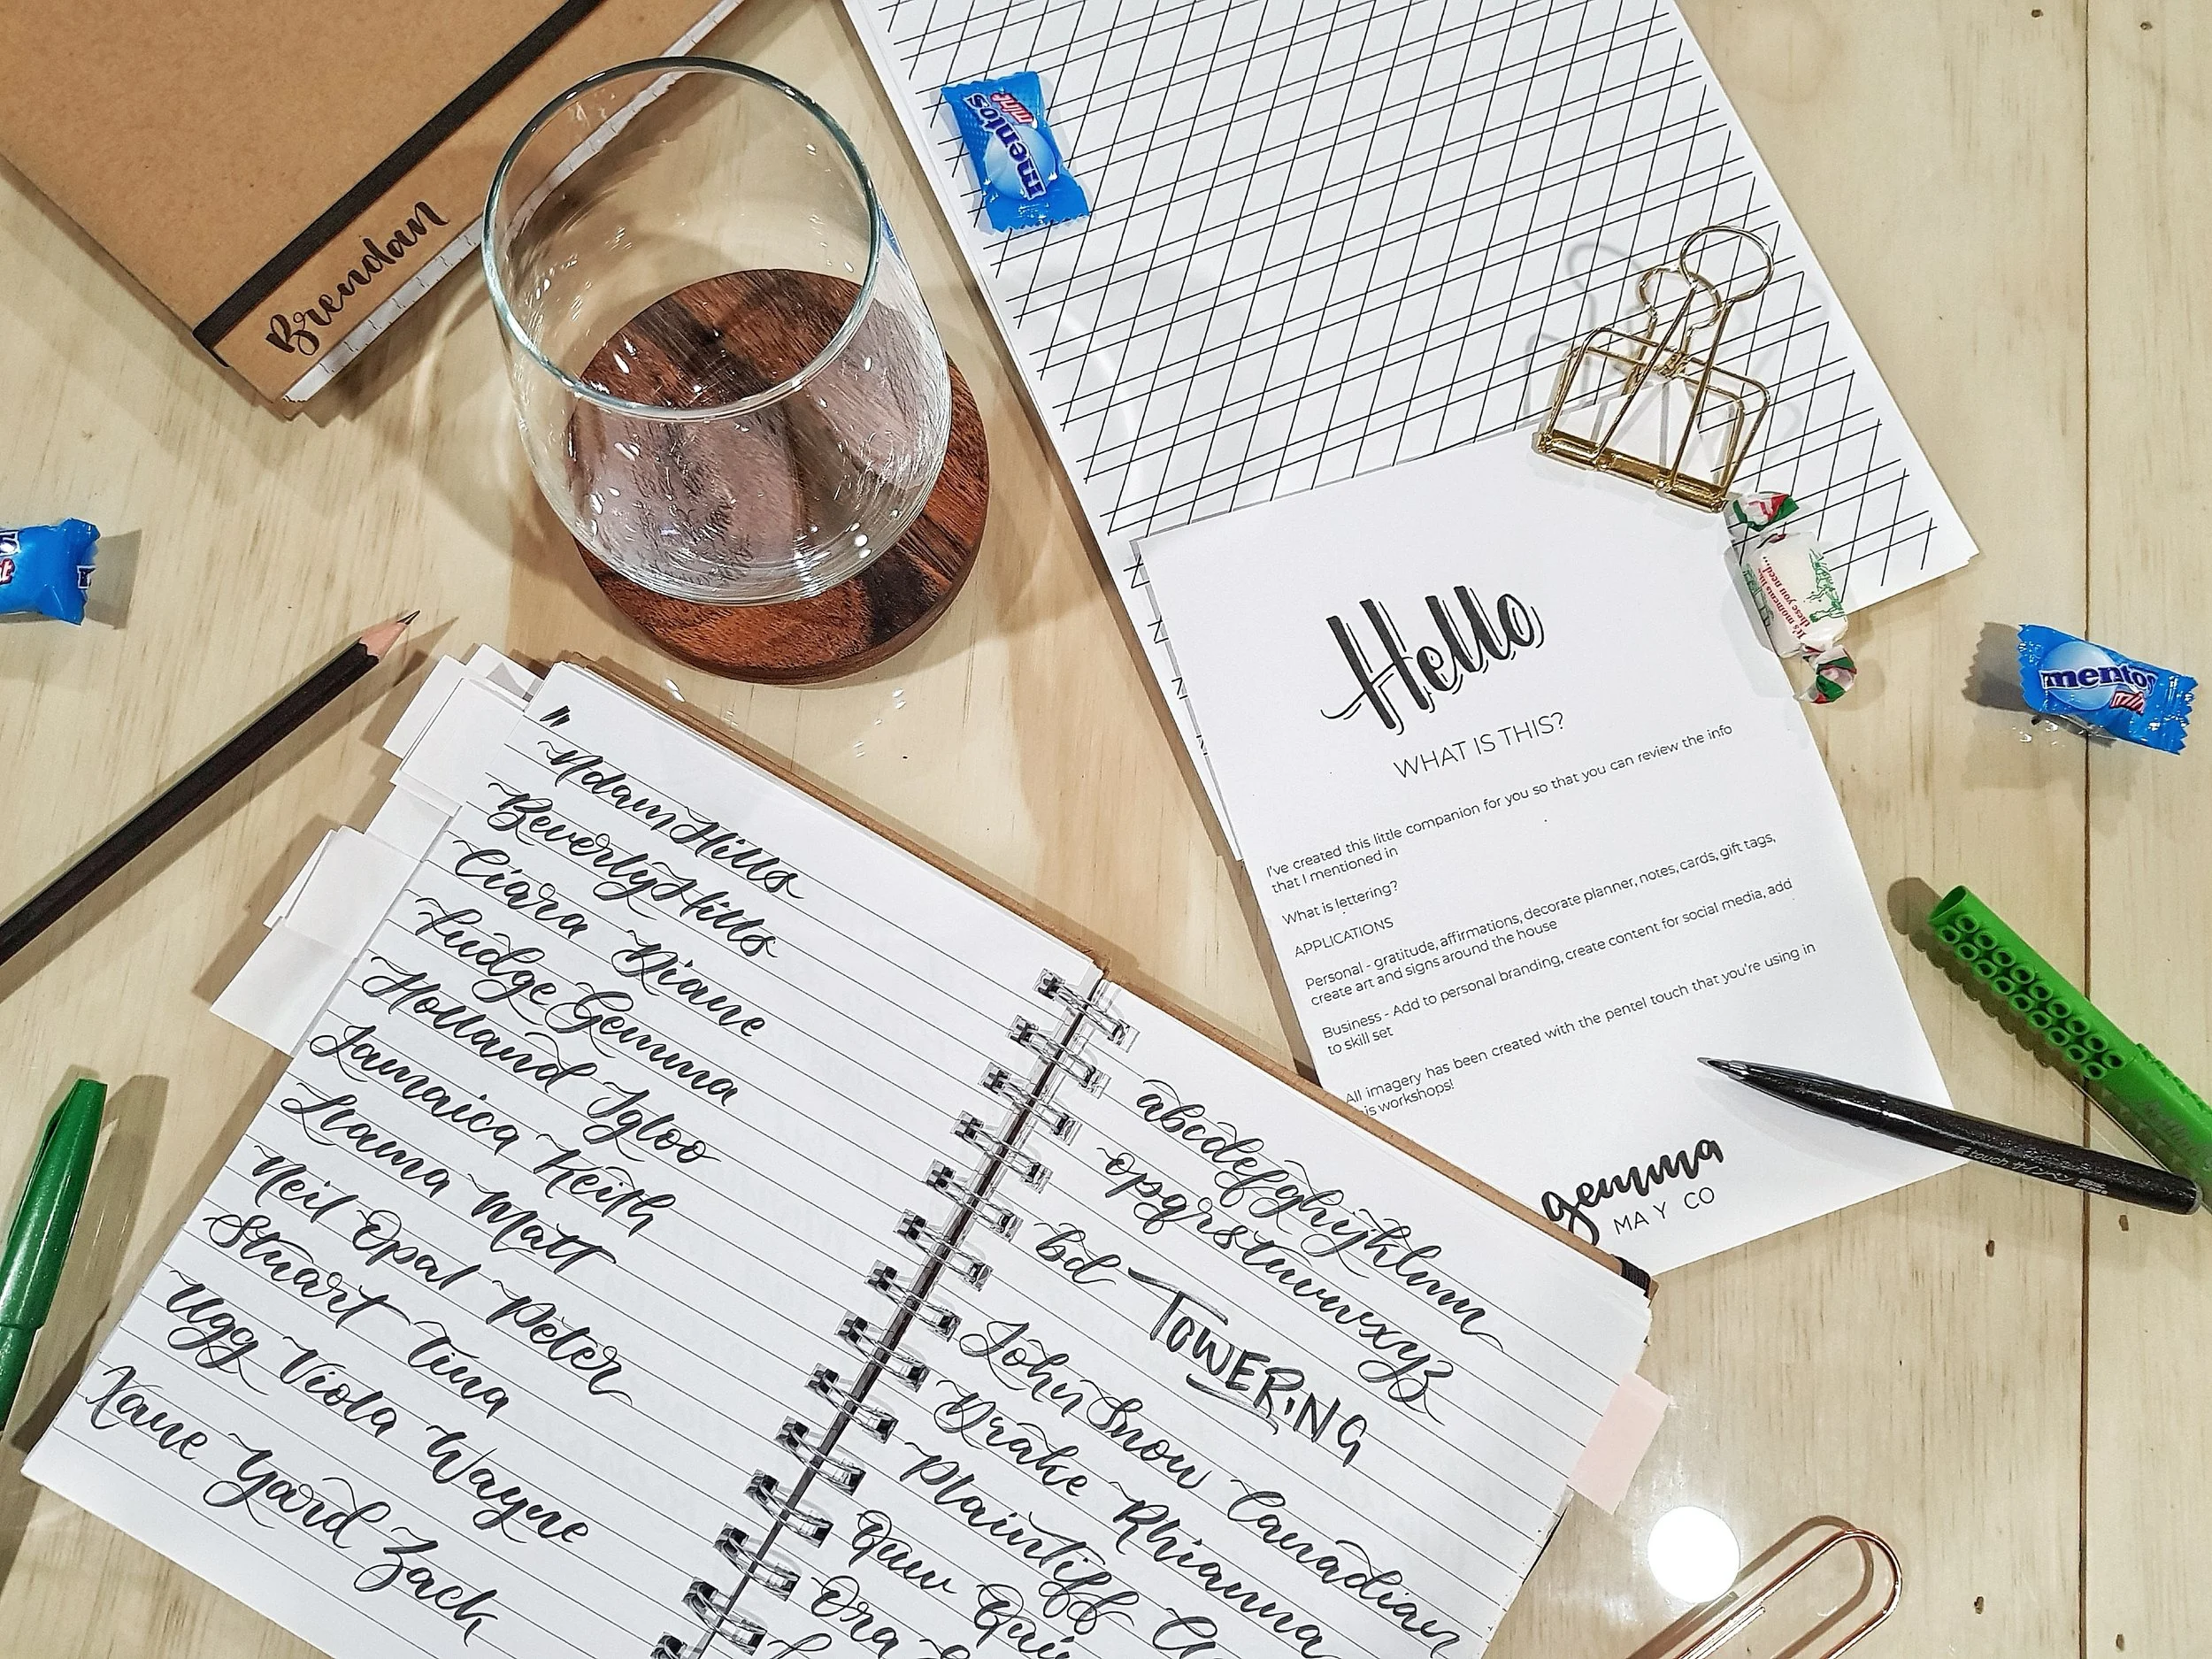 Brendan
mentos
mint
Hello
WHAT IS THIS?
I've created this little companion for you so that you can review the info
that I mentioned in
What is lettering?
APPLICATIONS
Personal - gratitude, affirmations, decorate planner, notes, cards, gift tags,
create art and signs around the house
Business - Add to personal branding, create content for social media, add
to skill set
All imagery has been created with the pentel touch that you're using in
is workshops!
gemma
MAY CO
It's moments like
these you need...
mentos
mint
touch
Adam Hills
Beverly Hills
Ciara Diane
Fudge Gemma
Holland Igloo
Jamaica Keith
Llama Matt
Neil Opal Peter
Stuart Tina
Ugg Viola Wayne
Xane Yard Zack
abcdefghijklmn
opqrstuvwxyz
bd TOWERING
John Snow Canadian
Drake Rhianna
Plaintiff
Quw
Ora